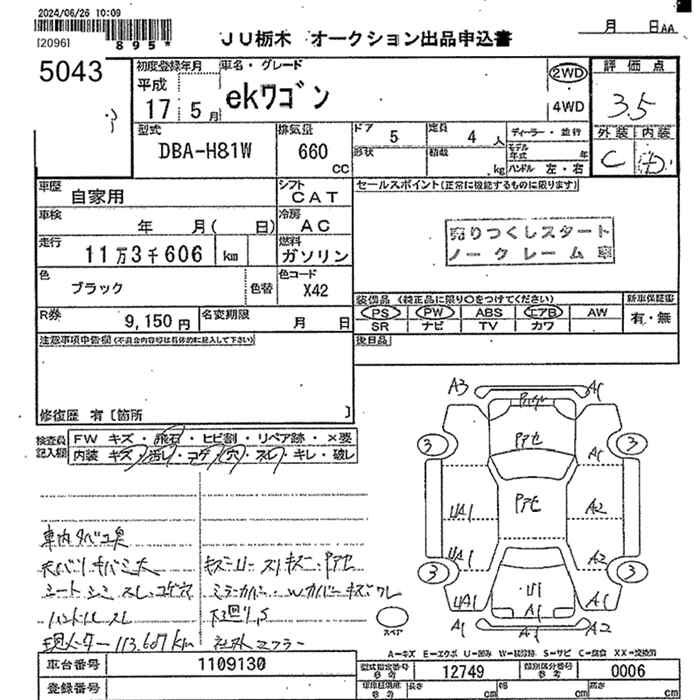 2024/06/26 10:09
[2096]
895
JU栃木 オークション出品申込書
月 日AA
5043
初度登録年月
平成
17 5月
車名・グレード
ekワゴン
2WD
4WD
評価点
3.5
外装 内装
C
型式
DBA-H81W
排気量
660 CC
ドア 5
定員 4 人
形状
積載 kg
ディーラー・並行
モデル年式 年
ハンドル 左・右
車歴
自家用
シフト
CAT
車検
年 月( 日)
冷房
AC
走行
11万3千606 km
燃料
ガソリン
色
ブラック
色替
色コード
X42
R券
9,150円
名変期限
月 日
セールスポイント(正常に機能するものに限ります)
売りつくしスタート
ノークレーム車
装備品 (純正品に限り○をつけてください)
新車保証書
PS PW ABS エアB AW
SR ナビ TV カワ
有・無
後日品
注意事項申告欄(不具合内容は具体的に記入して下さい)
修復歴 有〔箇所 〕
検査員記入欄
FW キズ・飛石・ヒビ割・リペア跡・×要
内装 キズ・汚レ・コゲ・穴・スレ・キレ・破レ
A3
A1
アセ
3
3
A1
アセ
UA1
A2
UA1
A2
3
3
U1
UA1
A1
A1
A1
A2
スペア
車内タバコ臭
シートシミ スレ コゲ穴
ハンドルスレ
現メーター 113,607km
社外マフラー
A-キズ E-エクボ U-凹み W-補修跡 S-サビ C-腐食 XX-交換済
車台番号
1109130
型式指定番号
参考
12749
類別区分番号
参考
0006
登録番号
長さ cm
幅 cm
高さ cm